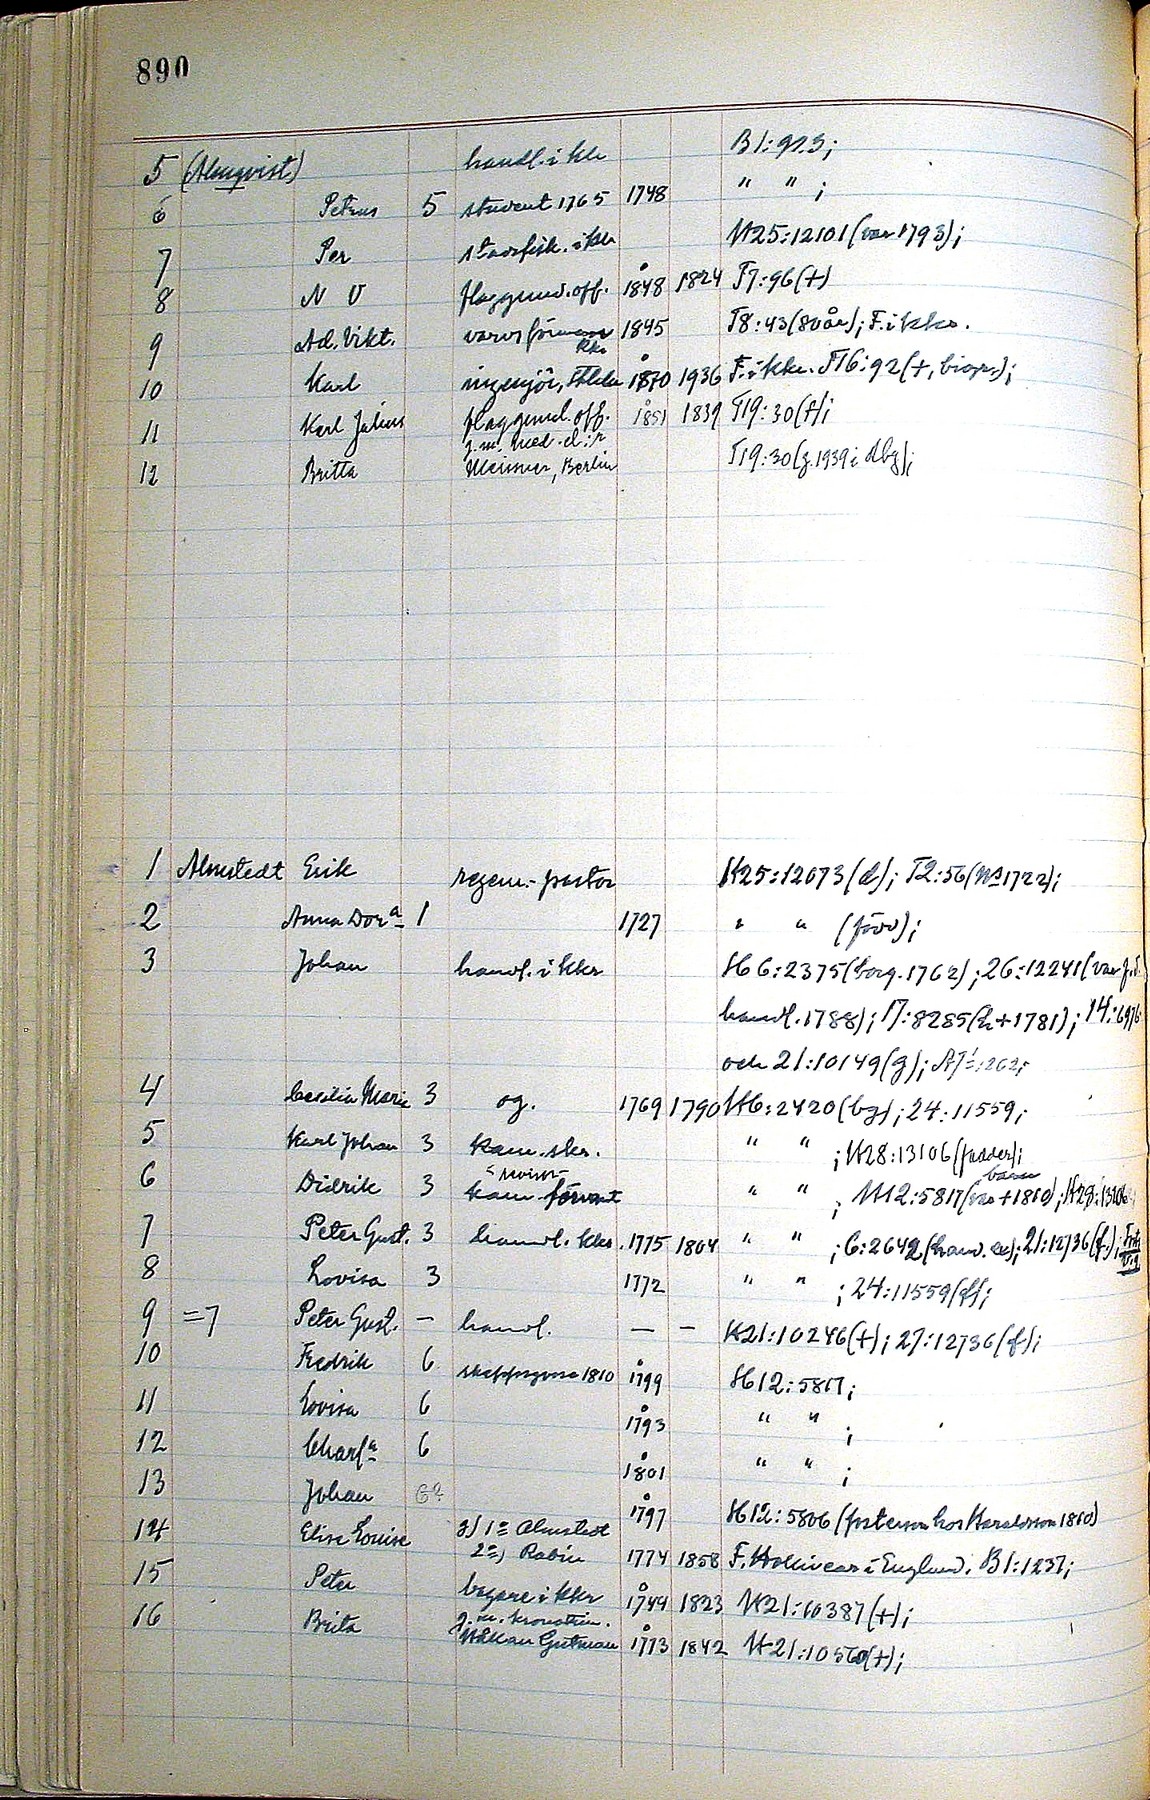 890
5 (Almqvist) handl. i kkr B1:913;
6 Petrus 5 student 1765 1748 " " ;
7 Per stadsfisk. i kkr H25:12101 (var 1793);
8 N V flaggund.off. 1848 1824 T7:96(+)
9 Ad. Vikt. varvsförman kkr 1845 T8:43(80 år); F. i kkr.
10 Karl ingenjör, 1870 1936 F. i kkr. T16:92(+, biogr.);
11 Karl Julius flaggund.off. 1851 1839 T19:30(+);
12 Britta g.m. med. d:r Meisner, Berlin T19:30(g. 1939 i Hbg);
1 Almstedt Erik regem.-pastor H25:12073(d); T2:56(1722);
2 Anna Dor:a 1 1727 " " (född);
3 Johan handl. i kkr H6:2375(borg. 1762); 26:12241(var f.d.
handl. 1788); 17:8285(h+1781); 14:6976
och 21:10149(g);
4 Cecilia Maria 3 og. 1769 1790 H6:2420(bg); 24:11559;
5 Karl Johan 3 kam. skr. " " ; H28:13106(fadder);
6 Didrik 3 kam revisor " " ; H12:5817(+1810);
7 Peter Gust. 3 handl. kkr. 1775 1804 " " ; 6:2642; 21:12736(f.);
8 Lovisa 3 1772 " " ; 24:11559(f);
9 =7 Peter Gust. — handl. — — H21:10246(+); 27:12736(f);
10 Fredrik 6 skeppsgosse 1810 1799 H12:5817;
11 Lovisa 6 1793 " " ;
12 Charl:a 6 1801 " " ;
13 Johan 6? 1797 H12:5806(fosterson hos Haraldsson 1810)
14 Elisa Louise 3) 1:o Almstedt 2:o) Rabin 1774 1858 F. i England. B1:1237;
15 Peter bagare i kkr 1749 1823 H21:10387(+);
16 Brita g.m. kronotim. Håkan Gutman 1773 1842 H21:10560(+);